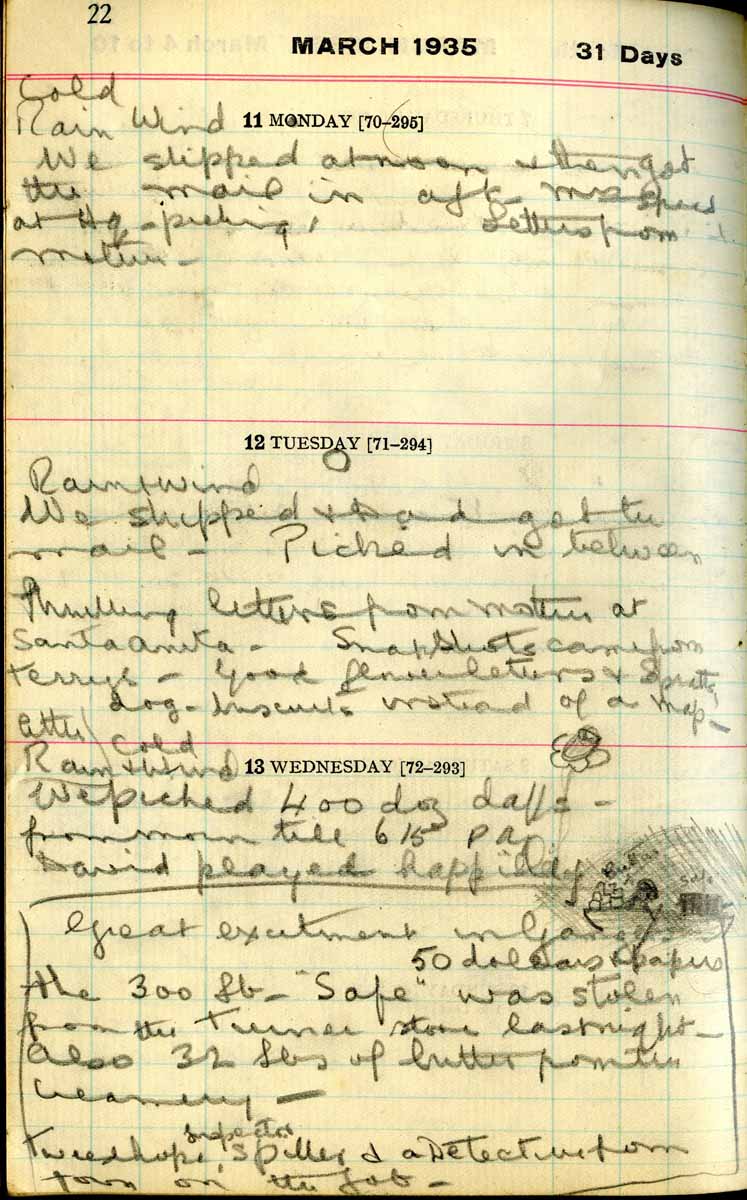 22
MARCH 1935 31 Days
Cold
Rain Wind 11 MONDAY [70–295]
We shipped at noon & then got
the mail in aft-
at Hq - picking, letters from
mother -
12 TUESDAY [71–294]
Rain & wind
We shipped & Dad got the
mail - Picked in between
Thrilling letters from mother at
Santa anita - Snap Shots came from
Terrys - Good letters & Spratts
dog-biscuits instead of a map -
Cold
Rain & Wind 13 WEDNESDAY [72–293]
We picked 400 doz daffs -
from morn till 6 15 P M
David played happily
Butter Safe
Great excitment in Ganges
50 dollars & papers
the 300 lb - "Safe" was stolen
from the Turner store last night -
Also 32 lbs of butter from the
Creamery -
Inspector
Spiller & a Detective from
town on the job -